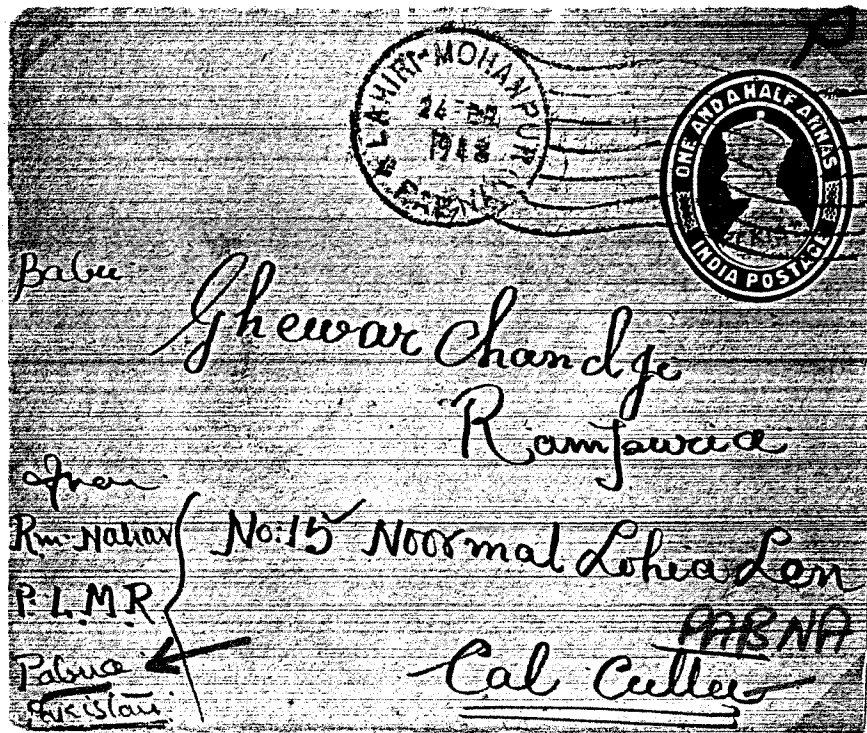 LAHIRI-MOHANPUR
24
1948
PABNA
ONE AND A HALF ANNAS
INDIA POSTAGE
Babu
Ghewar Chandji
Rampuria
From
Rm. Nahar
P. L. M. R
Pabna
Pakistan
No: 15 Noormal Lohia Len
PABNA
Cal Cutta